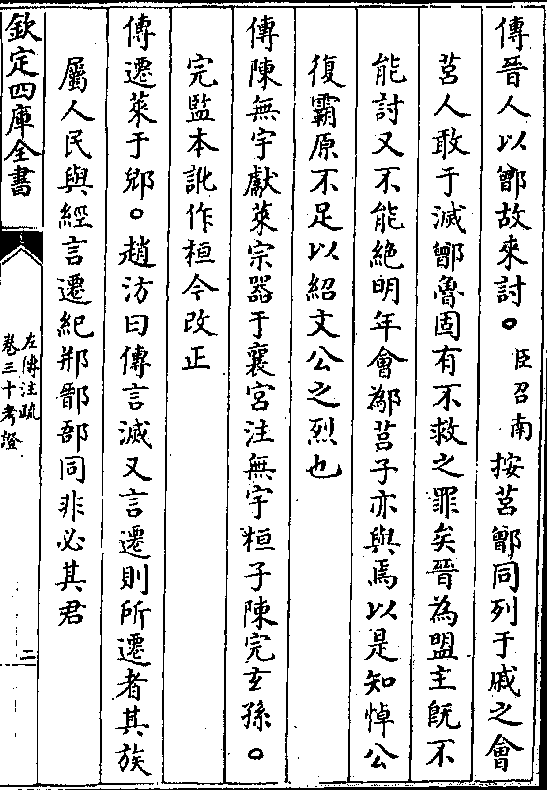 傳晉人以鄫故來討。臣召南按莒鄫同列于戚之會
莒人敢于滅鄫魯固有不救之罪矣晉為盟主旣不
能討又不能絶明年會鄬莒子亦與焉以是知悼公
復霸原不足以紹文公之烈也
傳陳無宇獻萊宗器于襄宮注無宇桓子陳完玄孫。
完監本訛作桓今改正
傳遷萊于郳。趙汸曰傳言滅又言遷則所遷者其族
屬人民與經言遷紀郱鄑郚同非必其君
欽定四庫全書
左傳注疏
卷三十考證
二